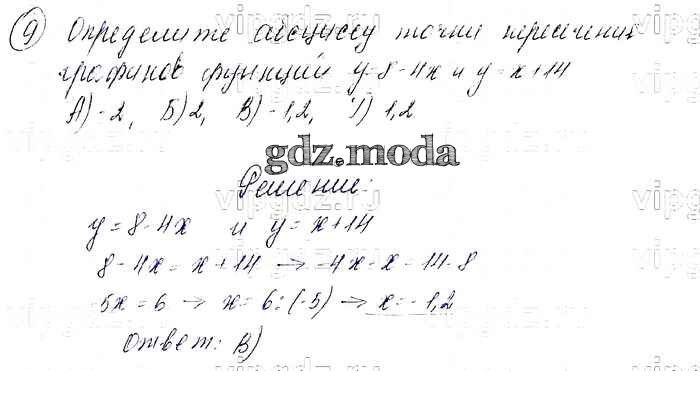 9) Определите абсциссу точки пересечения
графиков функций y=8-4x и y=x+14
А) -2, Б) 2, В) -1,2, Г) 1,2
gdz.moda
Решение:
y=8-4x и y=x+14
8-4x=x+14 → -4x-x=14-8
-5x=6 → x=6:(-5) → x=-1,2
Ответ: В)
vipgdz.ru
vipgdz.ru
vipgdz.ru
vipgdz.ru